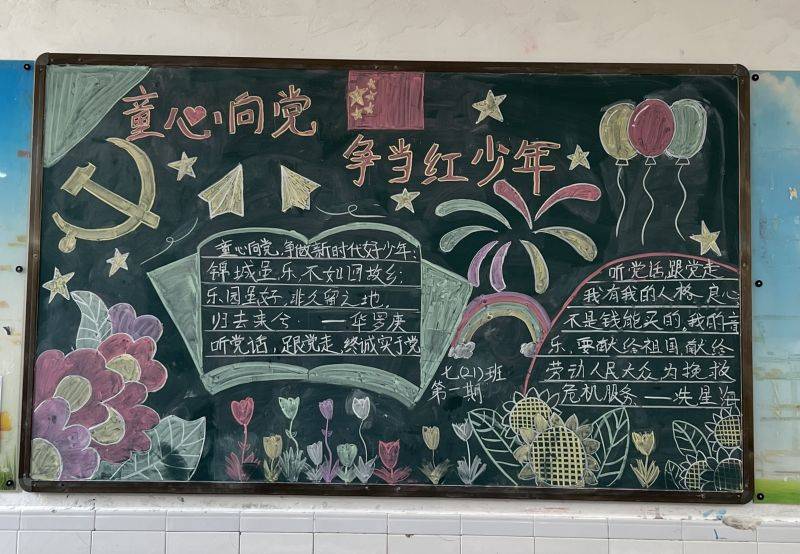 童心向党
争当红少年
童心向党,争做新时代好少年:
锦城虽乐,不如回故乡;
乐园虽好,非久留之地。
归去来兮。——华罗庚
听党话,跟党走,终诚实于党
七(21)班
第一期
听党话,跟党走
我有我的人格、良心
不是钱能买的。我的音
乐,要献给祖国,献给
劳动人民大众,为挽救
危机服务——冼星海